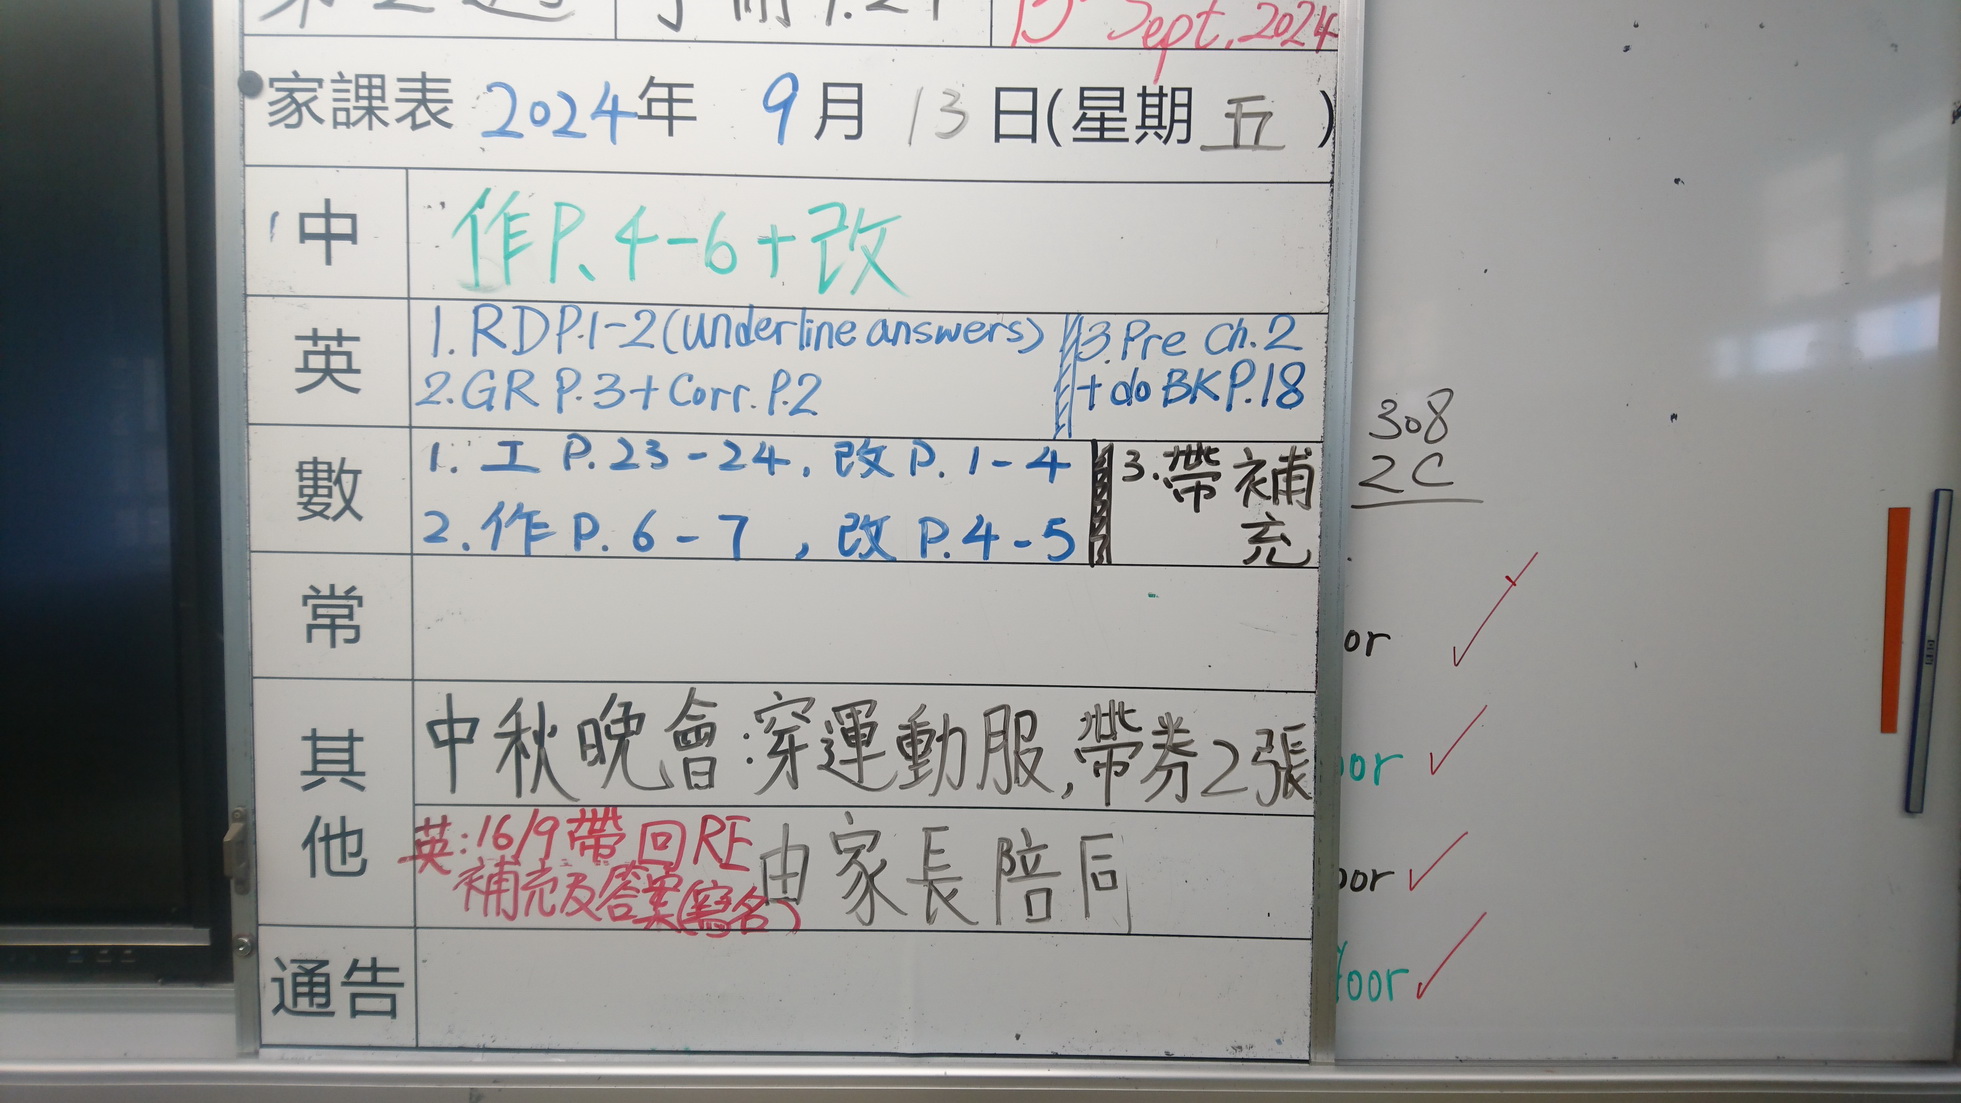 第2週
手冊P.21
13 Sept, 2024
家課表 2024年 9月 13日(星期五)
中
作P.4-6+改
英
1. RD P.1-2 (underline answers)
2. GR P.3 + Corr. P.2
3. Pre Ch.2
+ do BK P.18
數
1. 工 P.23-24, 改 P.1-4
2. 作 P.6-7, 改 P.4-5
3. 帶補
充
常
其他
中秋晚會:穿運動服,帶券2張
由家長陪同
英:16/9帶回RE
補充及答案(寫名)
通告
308
2C
or
oor
oor
oor